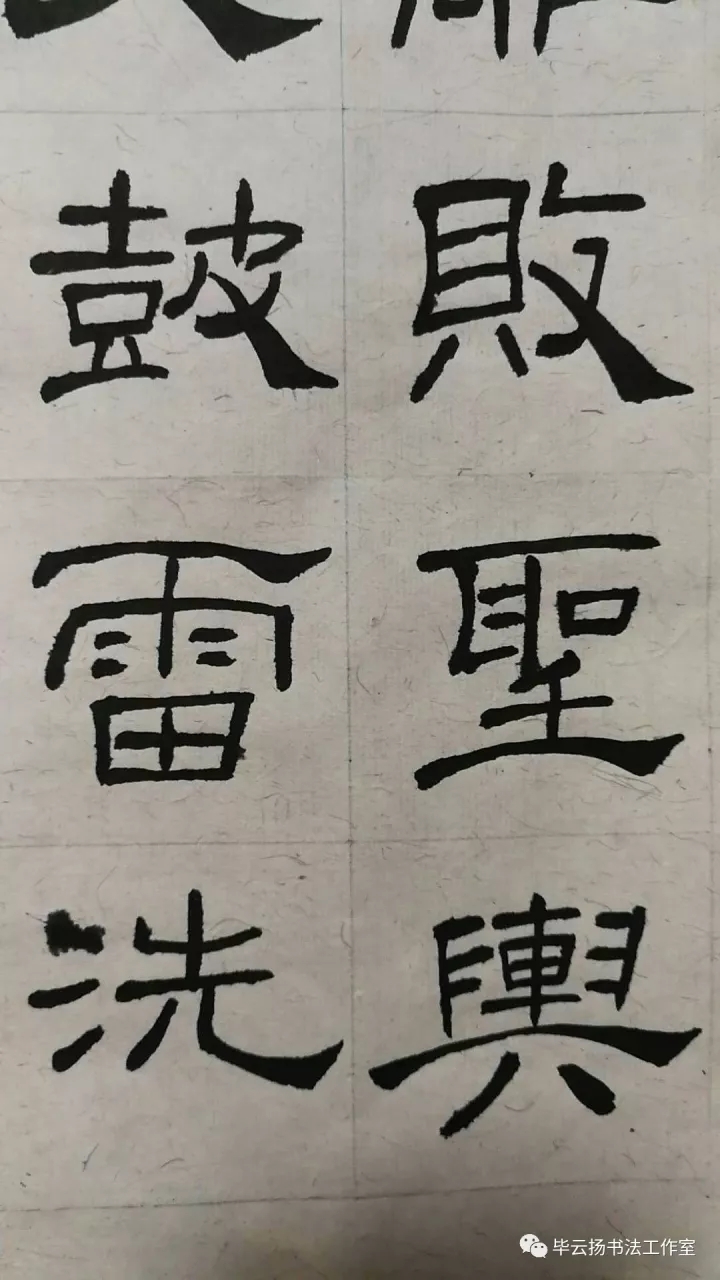 敗聖輿
皷雷洗
毕云扬书法工作室